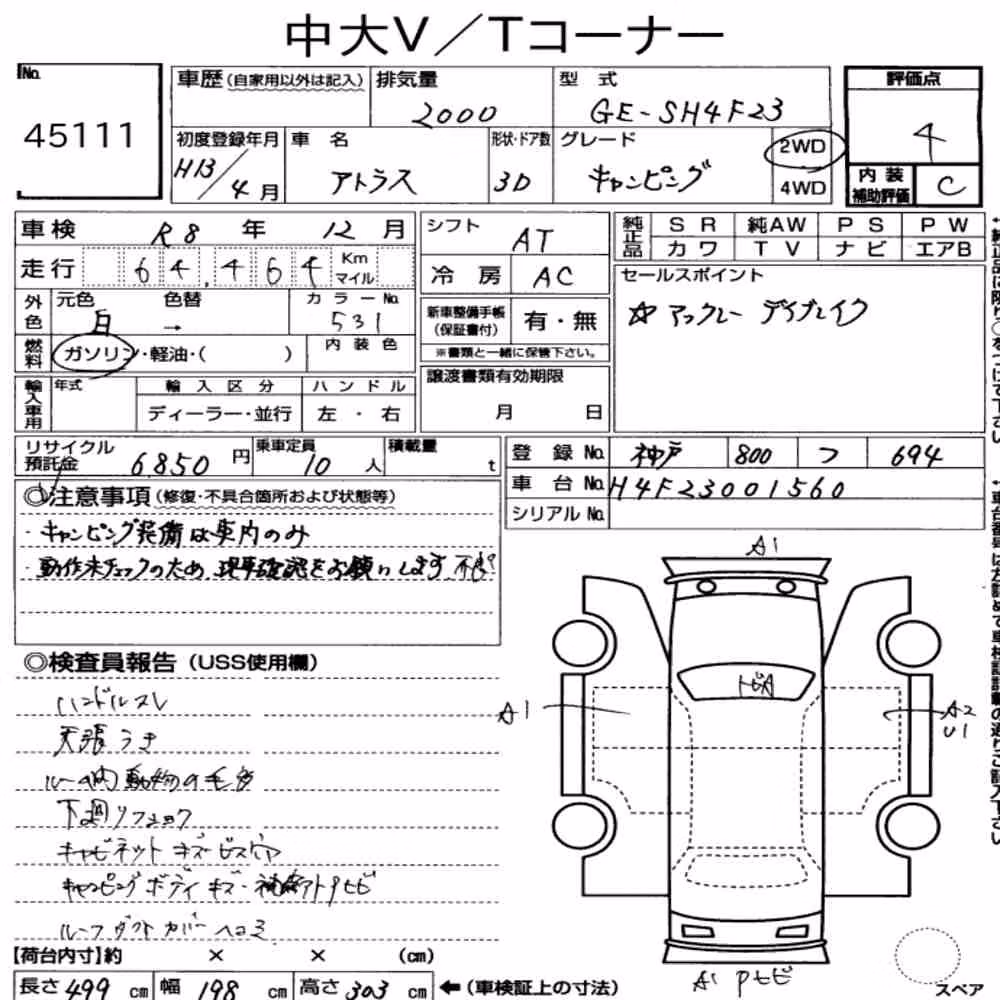 中大V／Tコーナー
No.
45111
車歴（自家用以外は記入）
排気量
2000
型 式
GE-SH4F23
評価点
4
初度登録年月
H13／4月
車 名
アトラス
形状・ドア数
3D
グレード
キャンピング
2WD
4WD
内 装
補助評価
C
車検 R8 年 12 月
走行 64,464 Km マイル
シフト AT
冷 房 AC
純正品
SR 純AW PS PW
カワ TV ナビ エアB
外色
元色 白
色替 →
カラーNo.
531
燃料
ガソリン・軽油・（ ）
内 装 色
新車整備手帳
（保証書付）
有・無
※書類と一緒に保管下さい。
セールスポイント
☆ アックレー デイブレイク
輸入車用
年式
輸 入 区 分
ディーラー・並行
ハ ン ド ル
左 ・ 右
譲渡書類有効期限
月 日
リサイクル
預託金 6850 円
乗車定員
10 人
積載量
t
登 録 No. 神戸 800 つ 694
車 台 No. H4F23001560
シリアル No.
◎注意事項（修復・不具合箇所および状態等）
・キャンピング装備は車内のみ
・動作未チェックのため、現車確認をお願いします 不良
◎検査員報告（USS使用欄）
ハンドルスレ
天張うき
ルーム内動物の毛多
下廻リフショク
キャビネット キズ・ビス穴
キャンピングボディ キズ・補修アトサビ
ルーフダクトカバーヘコミ
A1
トビA
A1
A2
U1
A1 サビ
スペア
【荷台内寸】約 × × （cm）
長さ 499 cm 幅 198 cm 高さ 303 cm ←（車検証上の寸法）